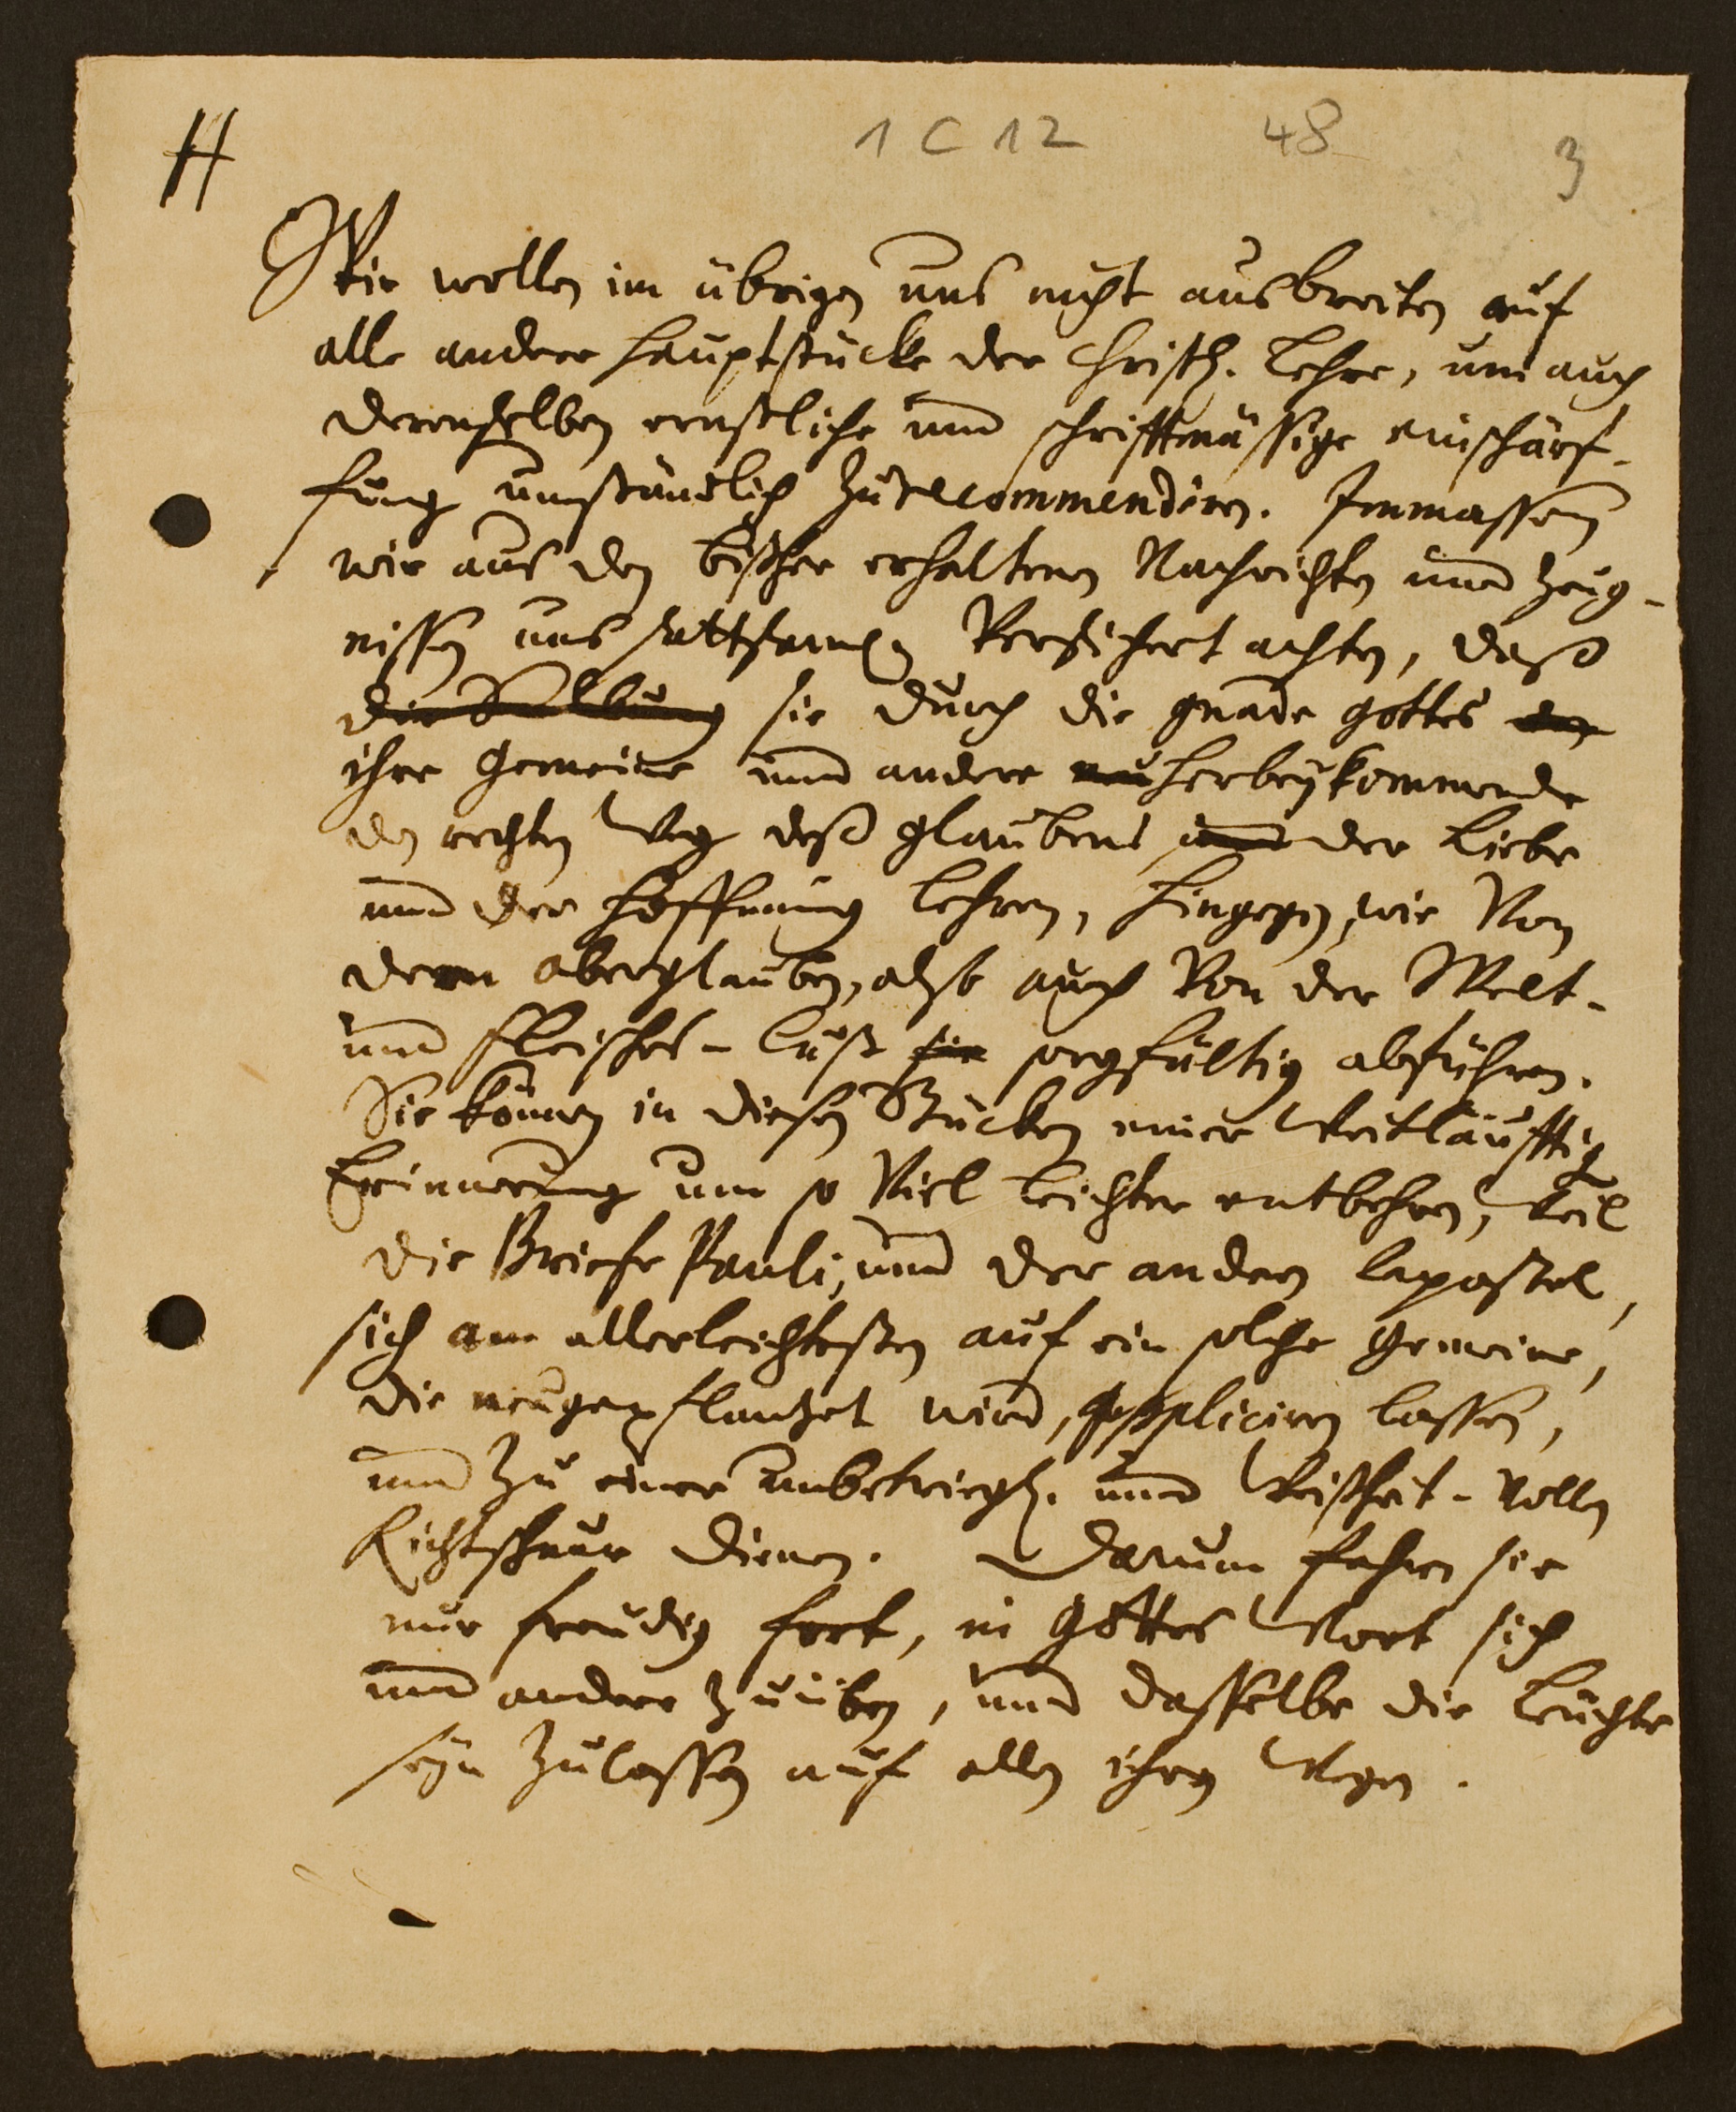 H
1 C 12 48 3
Wir wollen im übrigen uns nicht ausbreiten auf
alle andere Hauptstücke der Christl. Lehre, um auch
derenselben ernstliche und schrifftmässige einschärf-
fung umständlich zu recommendiren. Immassen
wir aus den bißher erhaltenen Nachrichten und Zeug-
nissen uns sattsam Versichert achten, daß
die Salbung sie durch die gnade Gottes
ihre Gemeine und andere herbeykommende
den rechten Weg deß glaubens und der Liebe
und der Hoffnung lehren, hingegen, wie Von
dem aberglauben, also auch Von der Welt-
und Fleisches-Lust sie sorgfältig abführen.
Sie können in diesen Stücken einer Weitläufftig
Erinnerung um so Viel leichter entbehren, Weil
die Briefe Pauli, und der andern Apostel,
sich am allerleichtesten auf ein solche Gemeine,
die neugepflantzet wird, appliciren lassen,
und zu einer unbetriegl. und Weißheit-Vollen
Richtschnur dienen. Darum fahren sie
nur freudig fort, in Gottes Wort sich
und andere zu üben, und dasselbe die Leuchte
seyn zulassen auf allen ihren Wegen.